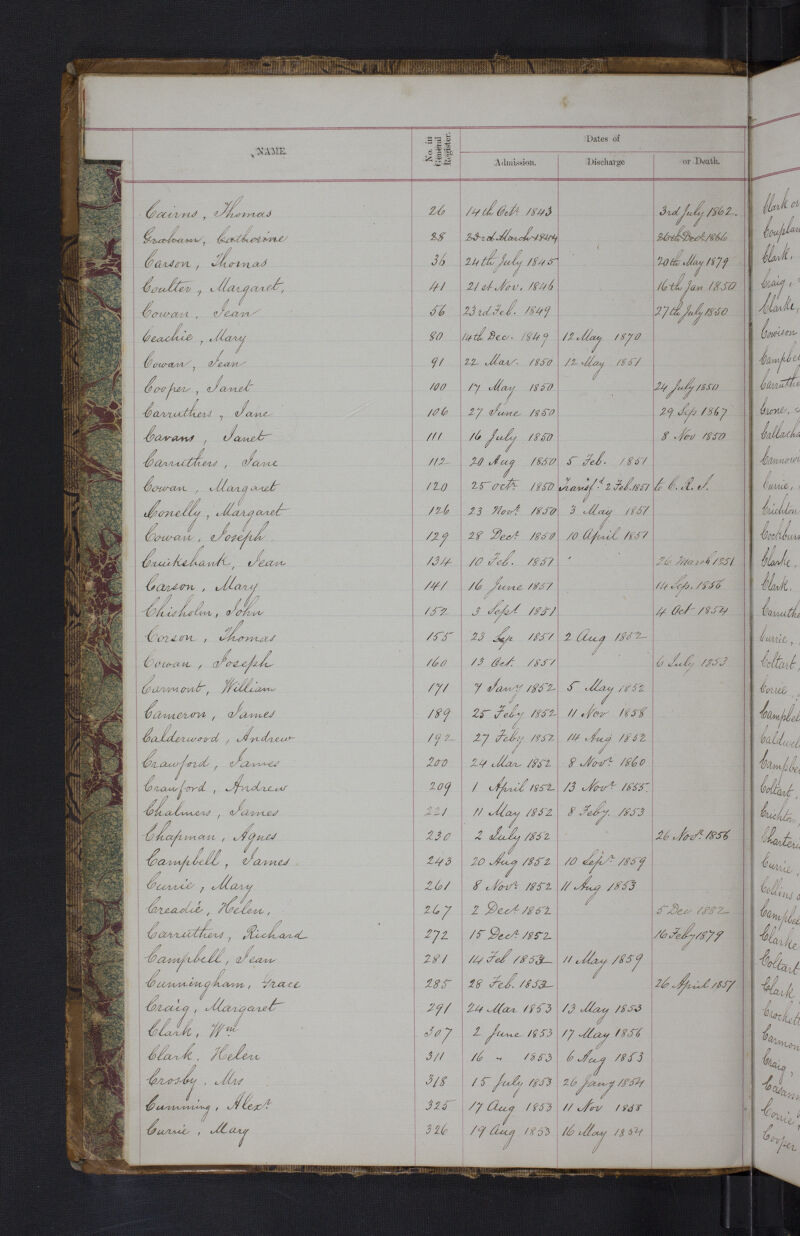 NAME. No. in General Register. Dates of
Admission. Discharge or Death.
Cairns, Thomas 26 14th Octr 1843 3rd July 1862.
Graham, Catherine 28 23rd March 1844 26th Decr 1866
Carson, Thomas 36 24th July 1845 20th May 1879
Coulter, Margaret, 41 21st Nov. 1846 16th Jan 1850
Cowan, Jean 56 23rd Feb. 1849 27th July 1850
Ceachie, Mary 80 14th Dec. 1849 12 May 1870
Cowan, Jean 91 22 Mar. 1850 12 May 1851
Cooper, Janet 100 17 May 1850 24 July 1850
Carruthers, Jane 106 27 June 1850 29 Sep 1867
Cavans, Janet 111 16 July 1850 8 Nov 1850
Carruthers, Jane 112 20 Aug 1850 5 Feb. 1851
Cowan, Margaret 120 25 octr 1850 Transfd 2 Feb. 1851 to C. R. I.
Conelly, Margaret 126 23 Novr 1850 3 May 1851
Cowan, Joseph 129 28 Decr 1850 10 April 1851
Cruickshank, Jean 134 10 Feb. 1851 26 March 1851
Carson, Mary 141 16 June 1851 14 Sep. 1856
Chisholm, John 152 3 Sept 1851 4 Oct 1854
Corson, Thomas 155 23 Sep 1851 2 Aug 1852
Cowan, Joseph 160 13 Oct. 1851 6 July 1853
Carmont, William 171 7 Jany 1852 5 May 1852
Cameron, James 189 25 Feby 1852 11 Nov 1858
Calderwood, Andrew 192 27 Feby 1852 14 Aug 1852
Crawford, James 200 24 Mar 1852 8 Novr 1860
Crawford, Andrew 209 1 April 1852 13 Novr 1855.
Chalmers, James 221 11 May 1852 8 Feby. 1853
Chapman, Agnes 230 2 July 1852 26 Novr 1856
Campbell, James 243 20 Aug 1852 10 Sepr 1859
Currie, Mary 261 8 Novr 1852 11 Aug 1853
Creadie, Helen, 267 2 Decr 1852 5 Dec 1882
Carruthers, Richard 272 15 Decr 1852 16 Feby 1879
Campbell, Jean 281 14 Feb 1853 11 May 1859
Cunningham, Grace 285 28 Feb. 1853 26 April 1857
Craig, Margaret 291 24 Mar 1853 13 May 1853
Clark, Wm 307 2 June 1853 17 May 1856
Clark. Helen 311 16 " 1853 6 Aug 1853
Crosby. Mrs 318 15 July 1853 26 Jany 1854
Cumming, Alexr 325 17 Aug 1853 11 Nov 1858
Currie, Mary 326 19 Aug 1853 16 May 1854
Clark.
Craig,
Clarke,
Cowison
Currie,
Crichton
Clarke,
Clark.
Currie,
Coltart,
Coltart,
Crichton,
Currie,
Clarke
Coltart
Clark,
Craig,
Cooper